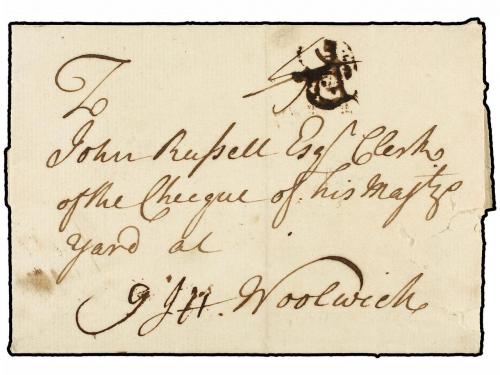 To
John Russell Esqr. Clerk
of the Checque of his Majtys
Yard at
Woolwich